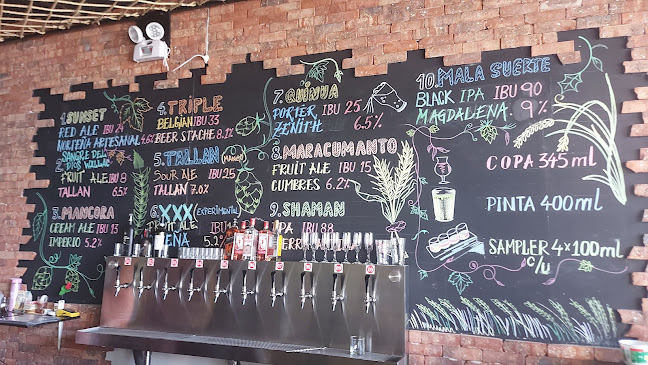 1. SUNSET
RED ALE IBU 24
NORTEÑA ARTESANAL 4.6%
2. SANGRE DEL
FRUIT ALE IBU 8
TALLAN 6.5%
3. MANCORA
CREAM ALE IBU 15
IMPERIO 5.2%
4. TRIPLE
BELGIAN IBU 33
BEER STACHE 8.1%
5. TALLAN (MANGO)
SOUR ALE IBU 25
TALLAN 7.0%
6. XXX (EXPERIMENTAL)
FRUIT ALE IBU
5.2%
7. QUINUA
PORTER IBU 25
ZENITH 6.5%
8. MARACUMANTO
FRUIT ALE IBU 15
CUMBRES 6.2%
9. SHAMAN
IPA IBU 88
10. MALA SUERTE
BLACK IPA IBU 90
MAGDALENA 9%
COPA 345ml
PINTA 400ml
SAMPLER 4x100ml
c/u